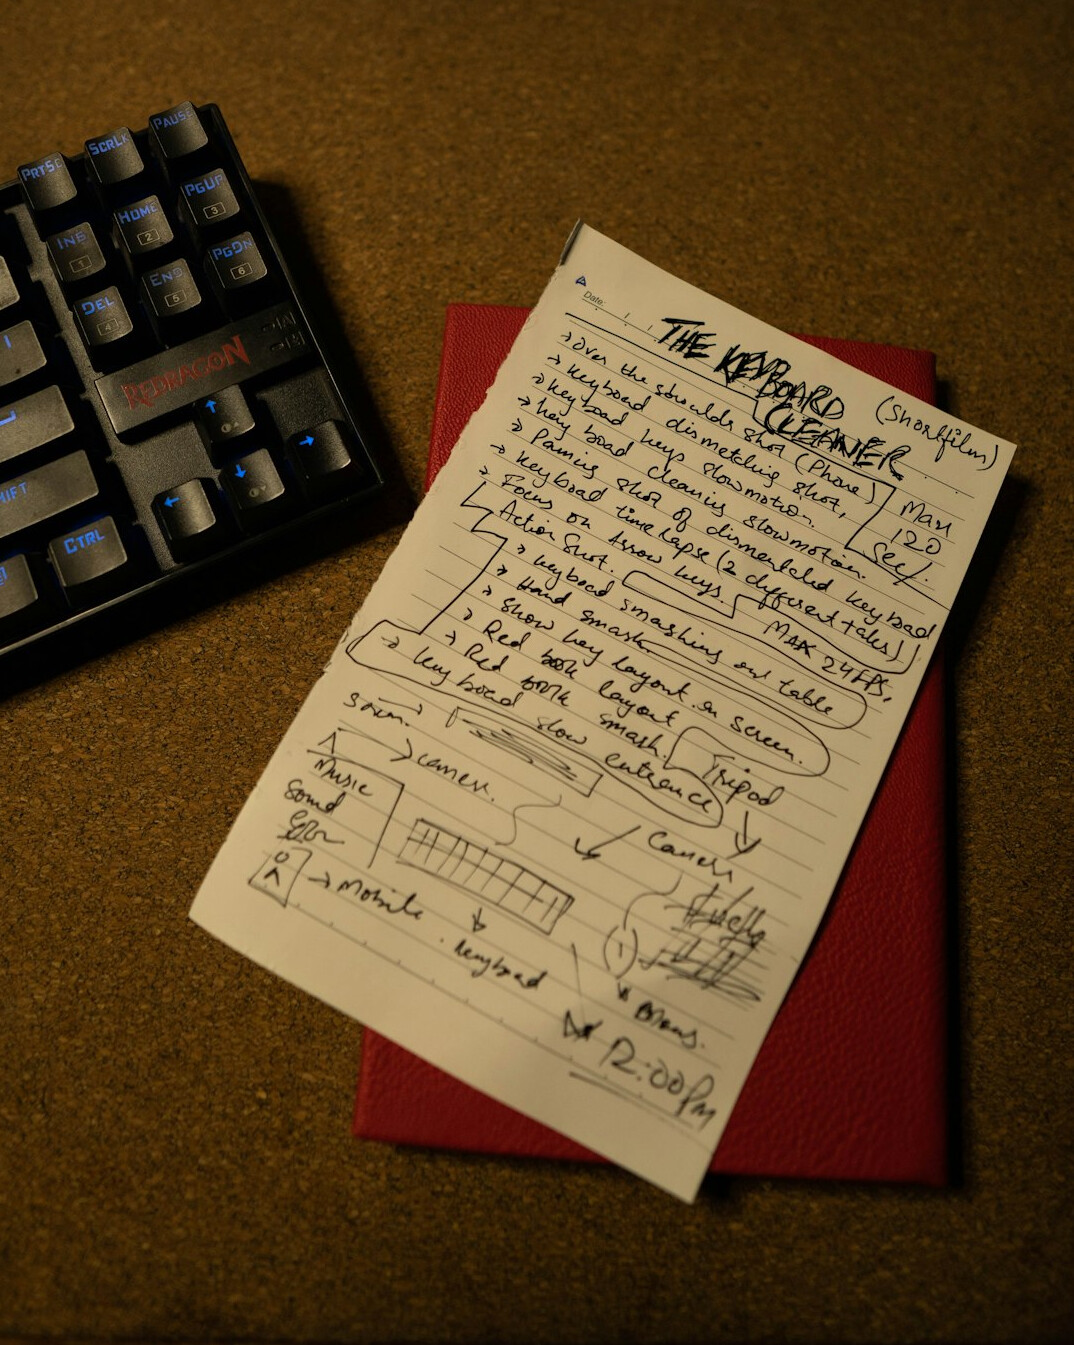 PrtSc
ScrLk
Pause
Ins
1
Home
2
PgUp
3
Del
4
End
5
PgDn
6
REDRAGON
Ctrl
Date:
THE KEYBOARD
CLEANER
(Shortfilm)
→ Over the shoulds shot (Phone)
→ Keyboard dismetching shot,
→ Key boad keys slowmotion.
→ Key boad cleaning slowmotion.
→ Paning shot of dismentled keyboad
→ Keyboad timelapse (2 different takes)
→ Focus on Arrow keys.
Action Shot.
Max
120
Sec/.
MAX 24 FPS.
→ keyboad smashing on table
→ Hand smash
→ Show key layout on screen.
→ Red book layout
→ Red book smash.
→ key boad slow entrance
Tripod
→ camera.
Music
Sound
→ Mobile
keyboad
Camera
12:00 Pm